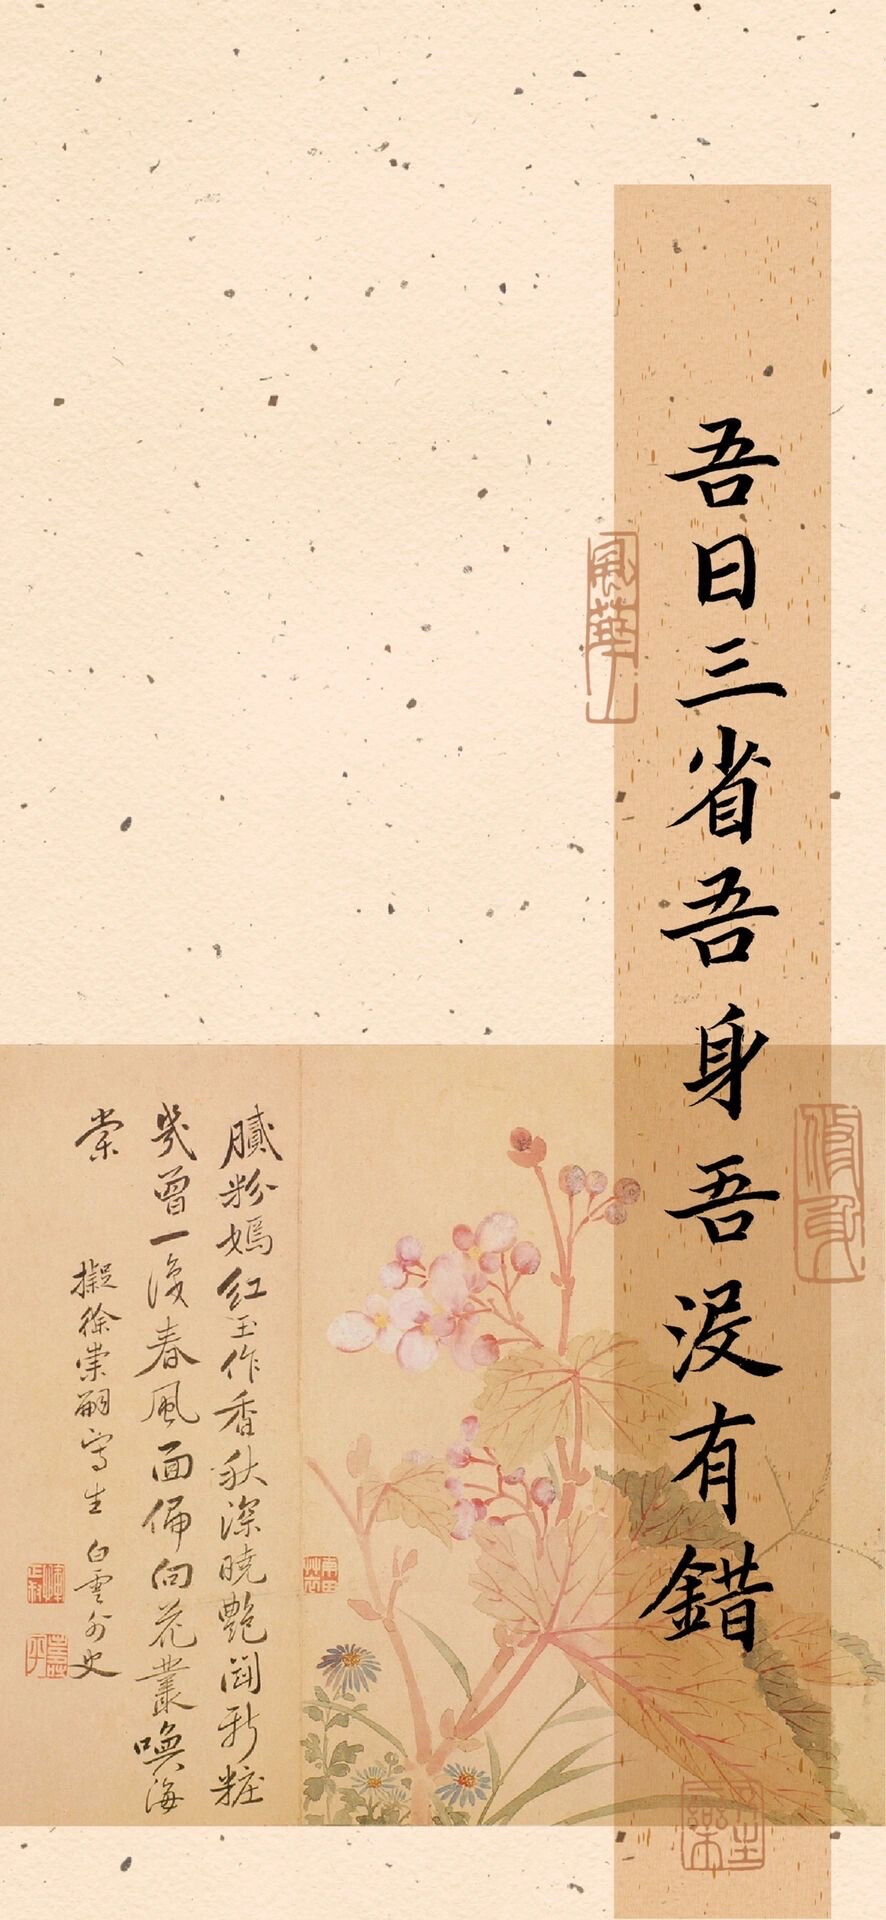 吾日三省吾身吾沒有錯
風華
修身
膩粉嫣紅玉作香秋深曉艷鬪新粧
幾曾一春風面偏向花叢喚海
棠
擬徐崇嗣寫生 白雲外史